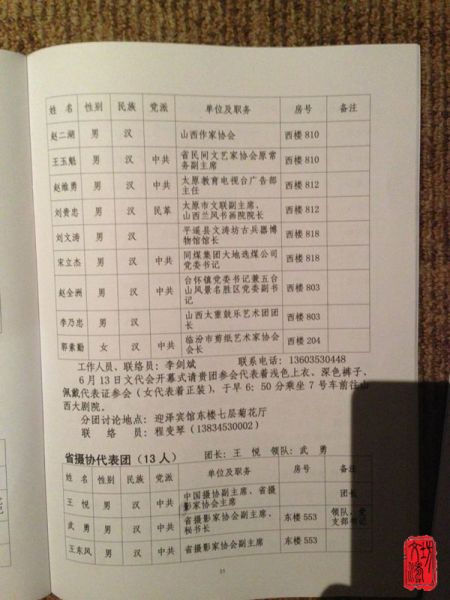 姓 名 性别 民族 党派 单位及职务 房号 备注
赵二湖 男 汉 山西作家协会 西楼 810
王玉魁 男 汉 中共 省民间文艺家协会原常
务副主席 西楼 810
赵维勇 男 汉 中共 太原教育电视台广告部
主任 西楼 812
刘贵忠 男 汉 民革 太原市文联副主席、
山西兰风书画院院长 西楼 812
刘文涛 男 汉 平遥县文涛坊古兵器博
物馆馆长 西楼 818
宋立杰 男 汉 中共 同煤集团大地选煤公司
党委书记 西楼 818
赵全洲 男 汉 中共 台怀镇党委书记兼五台
山风景名胜区党委副书
记 西楼 803
李乃忠 男 汉 山西太重鼓乐艺术团团
长 西楼 803
郭素勤 女 汉 中共 临汾市剪纸艺术家协会
会长 西楼 204
工作人员、联络员：李剑斌 联系电话：13603530448
6 月 13 日文代会开幕式请贵团参会代表着浅色上衣、深色裤子、
佩戴代表证参会（女代表着正装），于早 6：50 分乘坐 7 号车前往山
西大剧院。
分团讨论地点：迎泽宾馆东楼七层菊花厅
联 络 员：程变琴（13834530002）
省摄协代表团（13 人） 团长：王 悦 领队：武 勇
姓 名 性别 民族 党派 单位及职务 房号 备注
王 悦 男 汉 中共 中国摄协副主席、省摄
影家协会主席 团长
武 勇 男 汉 中共 省摄影家协会副主席、
秘书长 东楼 553 领队、党
支部书记
王东风 男 汉 中共 省摄影家协会副主席 东楼 553
15